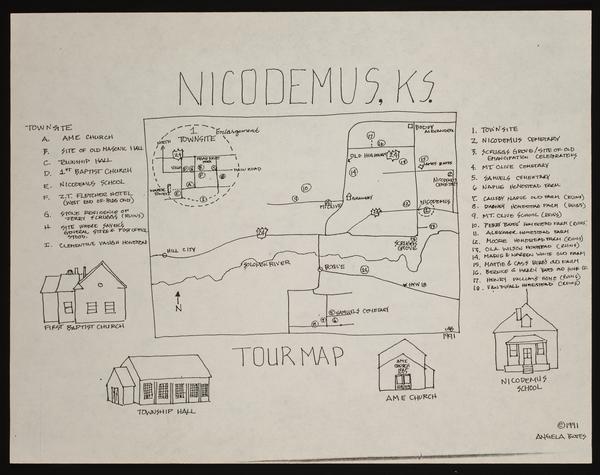 NICODEMUS, KS.
TOWNSITE
A. AME CHURCH
B. SITE OF OLD MASONIC HALL
C. TOWNSHIP HALL
D. 1ST BAPTIST CHURCH
E. NICODEMUS SCHOOL
F. Z.T. FLETCHER HOTEL
(WEST END OF BLDG ONLY)
G. STONE REMAINING OF
JERRY SCRUGGS (RUINS)
H. SITE WHERE SAYERS
GENERAL STORE POST OFFICE
STOOD.
I. CLEMENTINE VAUGHN HOMESTEAD
1
Enlargement
TOWNSITE
NORTH
24
MAIN ROAD
HILL CITY
24
SOLOMON RIVER
N
BOGUE
OLD HIGHWAY 24
MT OLIVE
GRANARY
24
NICODEMUS
SCRUGGS
GROVE
HWY 18
SAMUELS CEMETARY
1991
1. TOWNSITE
2. NICODEMUS CEMETARY
3. SCRUGGS GROVE/SITE OF OLD
EMANCIPATION CELEBRATIONS
4. MT OLIVE CEMETARY
5. SAMUELS CEMETARY
6. NAPUE HOMESTEAD FARM
7. CASSEY NAPUE OLD FARM (RUINS)
8. HOMESTEAD FARM (RUINS)
9. MT. OLIVE SCHOOL (RUINS)
10. PERRY BATES' HOMESTEAD FARM (RUINS)
11. ALEXANDER HOMESTEAD FARM
12. MOORE HOMESTEAD FARM (RUINS)
13. OLA WILSON HOMESTEAD (RUINS)
14. & WARREN WHITE OLD FARM
15. MATTIE & CASS BATES OLD FARM
16. BERNICE & HARRY BATES OLD
17. HENRY WILLIAMS HOME (RUINS)
18. HOMESTEAD (RUINS)
TOUR MAP
FIRST BAPTIST CHURCH
TOWNSHIP HALL
AME
CHURCH
AME CHURCH
NICODEMUS
SCHOOL
©1991
ANGELA BATES